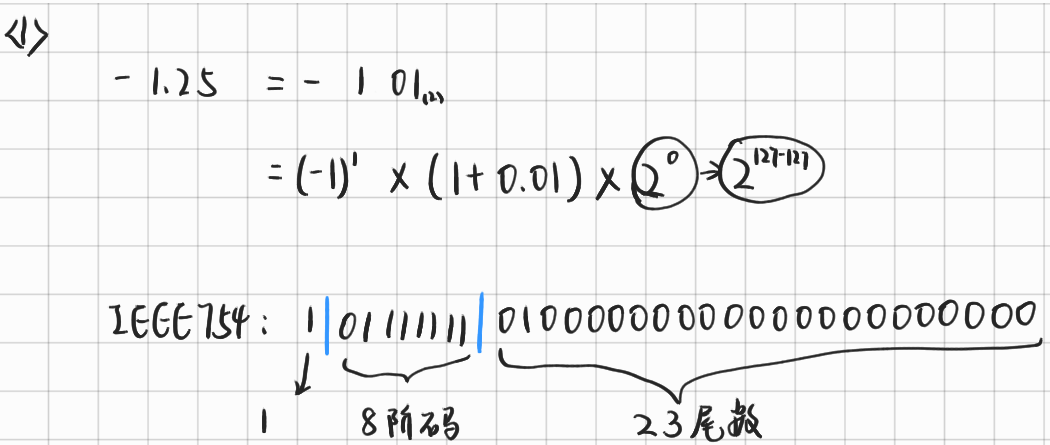 <1>
- 1.25 = - 1 01(2)
= (-1)¹ × (1+0.01) × 2⁰ → 2¹²⁷⁻¹²⁷
IEEE754: 1 | 01111111 | 01000000000000000000000
1 8阶码 23尾数